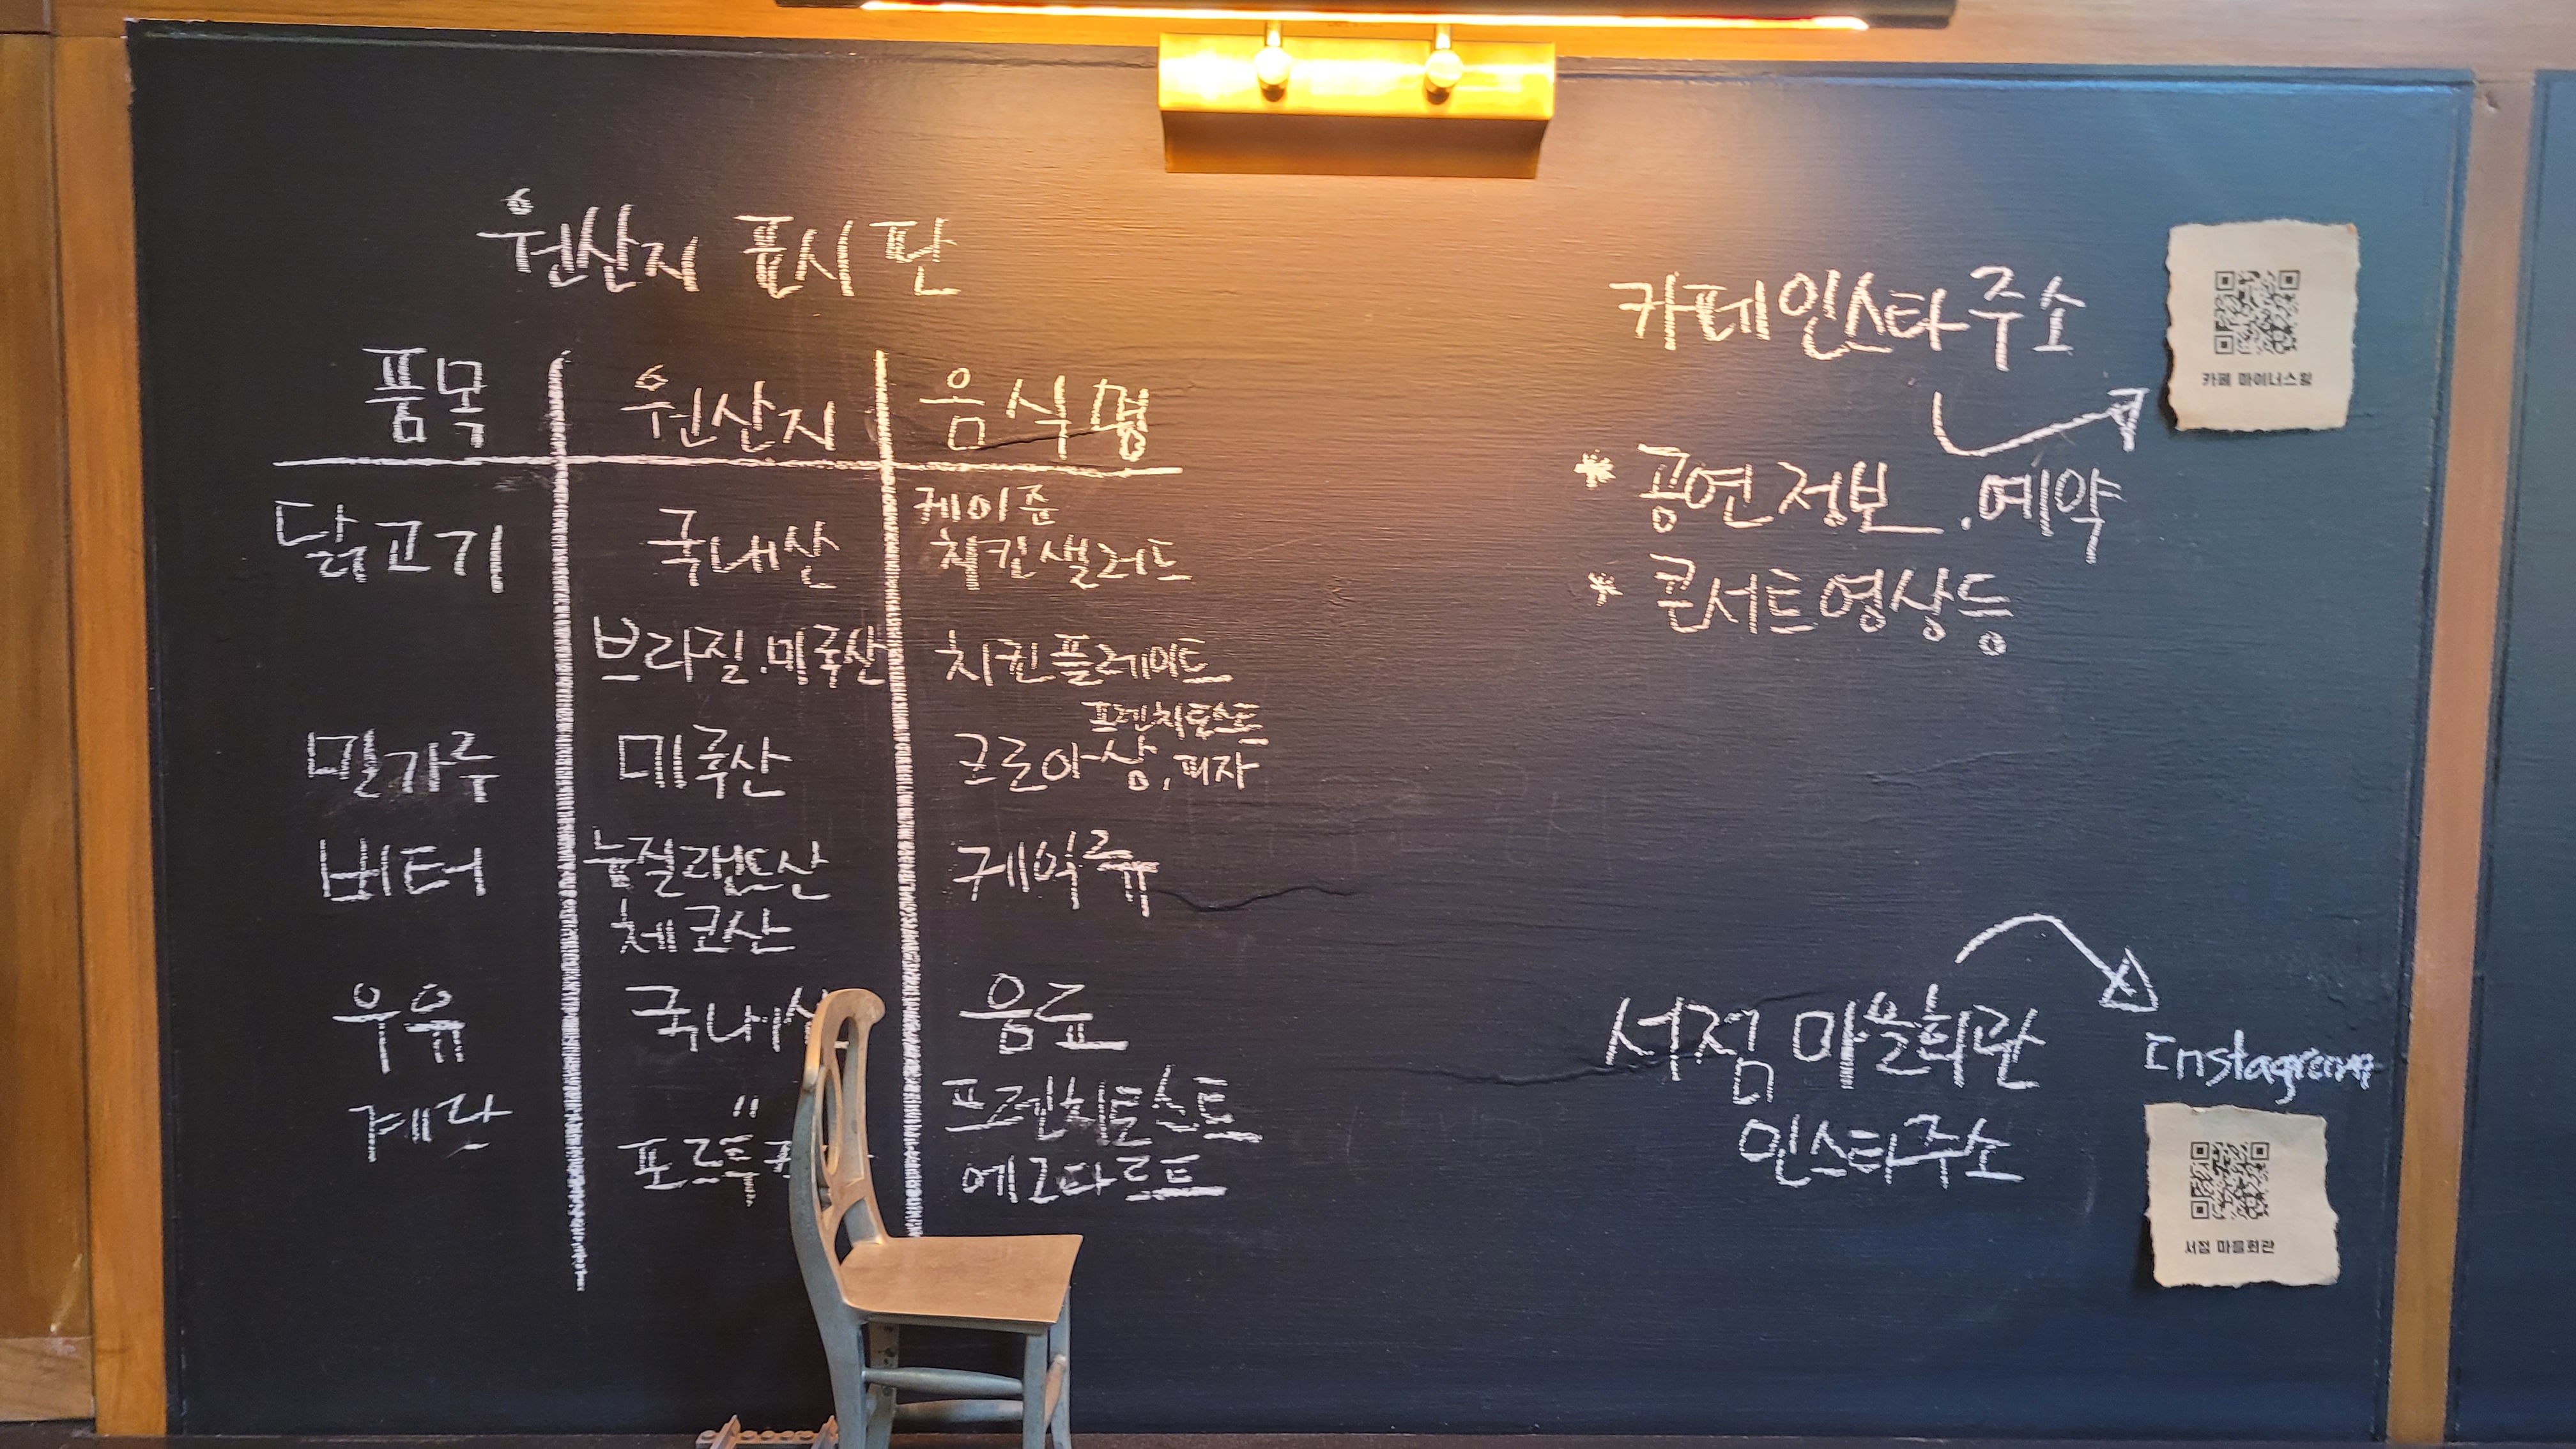 원산지 표시판
품목 원산지 음식명
닭고기 국내산 케이준
치킨샐러드
브라질.미국산 치킨플레이트
프렌치토스트
밀가루 미국산 크로아상,피자
버터 뉴질랜드산 케익류
체코산
우유 국내산 음료
계란 〃 프렌치토스트
에그타르트
카페인스타주소
* 공연정보.예약
* 콘서트영상등
카페 마이너스윙
서점마을회관
인스타주소
Instagram
서점 마을회관